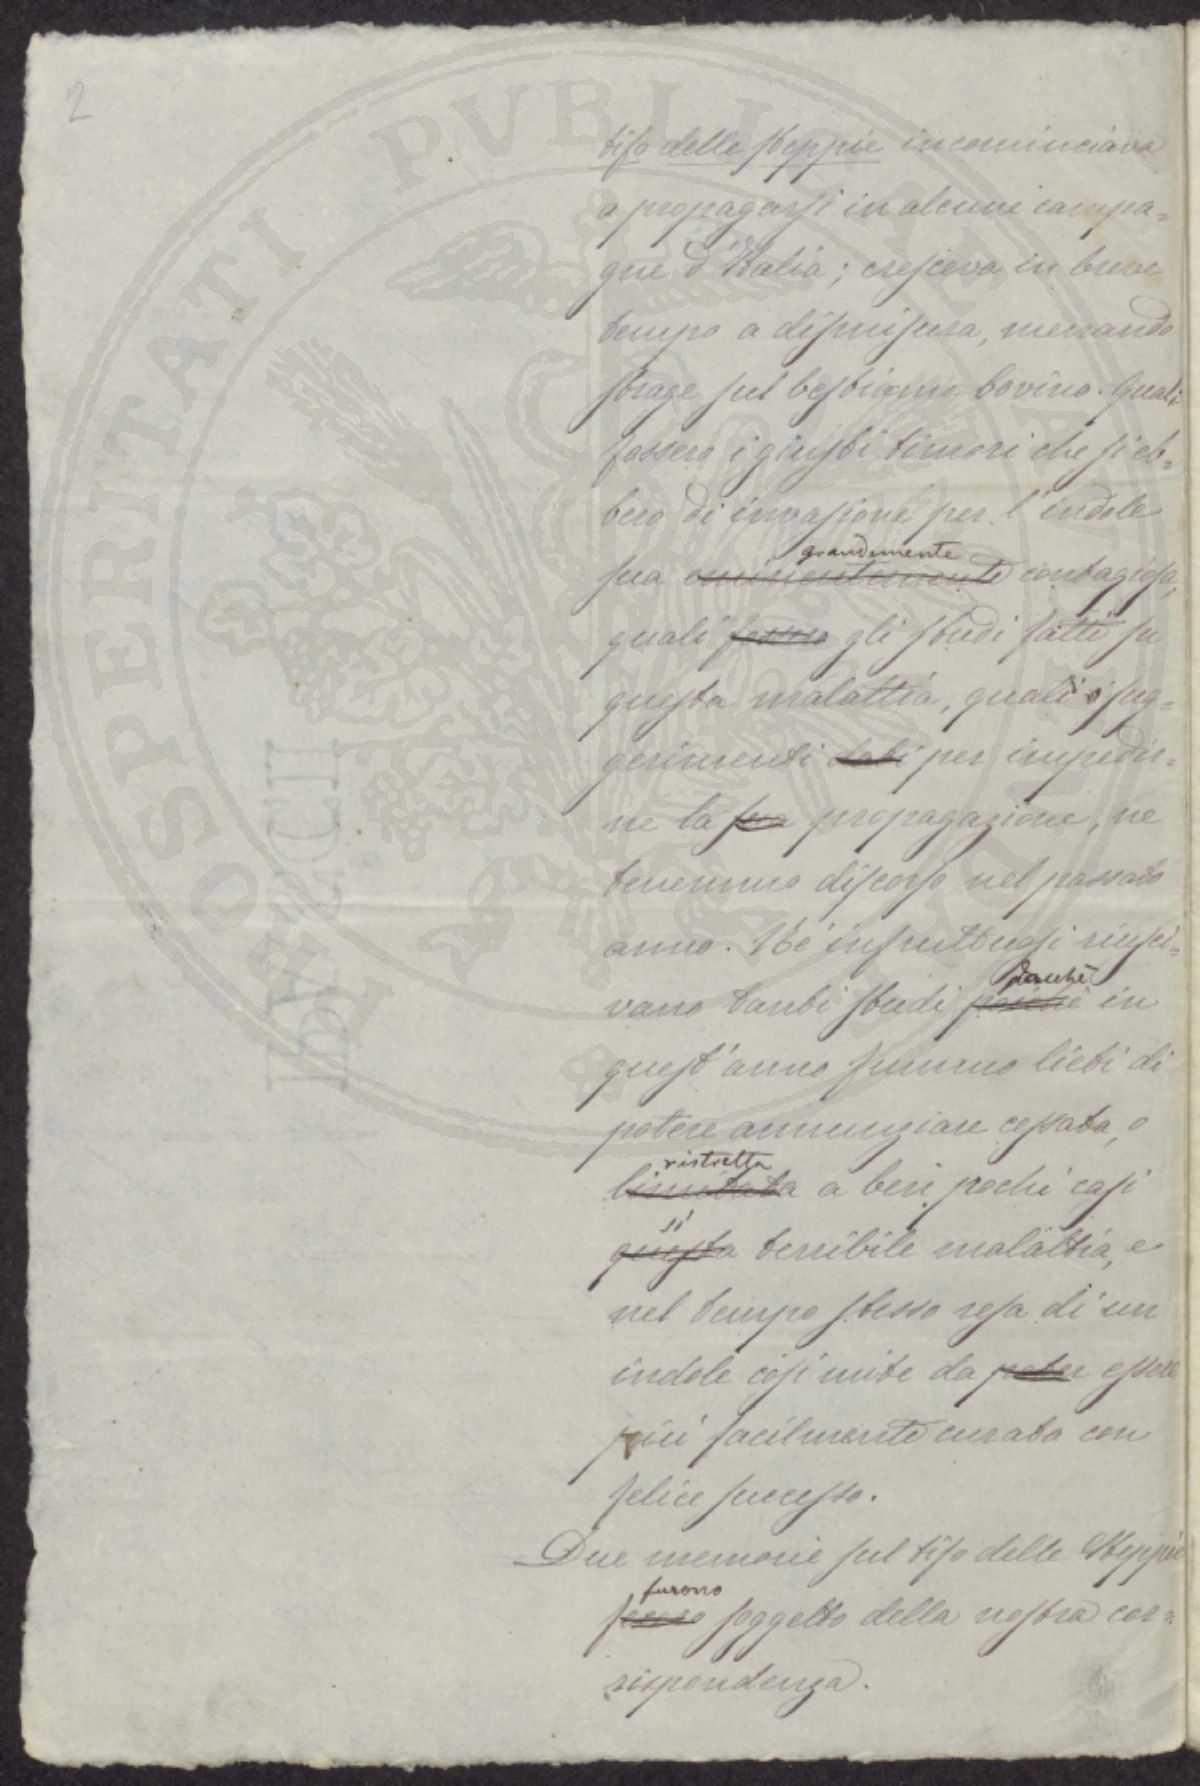 2
tifo delle Steppie incominciava
a propagarsi in alcune campa=
gne d'Italia; cresceva in breve
tempo a dismisura, menando
strage sul bestiame bovino. Quali
fossero i giusti timori che si eb=
bero di invasione per l'indole
grandemente
sua eminentemente contagiosa,
quali fossero gli studi fatti su
questa malattia, quali i sug=
gerimenti dati per impedir=
ne la sua propagazione, ne
tenemmo discorso nel passato
anno. Nè infruttuosi riusci=
vano tanti studi poichè in
quest'anno fummo lieti di
potere annunziare cessata, o
ristretta
limitata a ben pochi casi
sì
questa terribile malattia, e
nel tempo stesso resa di un
indole così mite da poter essere
più facilmente curata con
felice successo.
Due memorie sul tifo delle Steppie
furono
soggetto della nostra cor=
rispondenza.
SOSPERITATI PVBLICAE